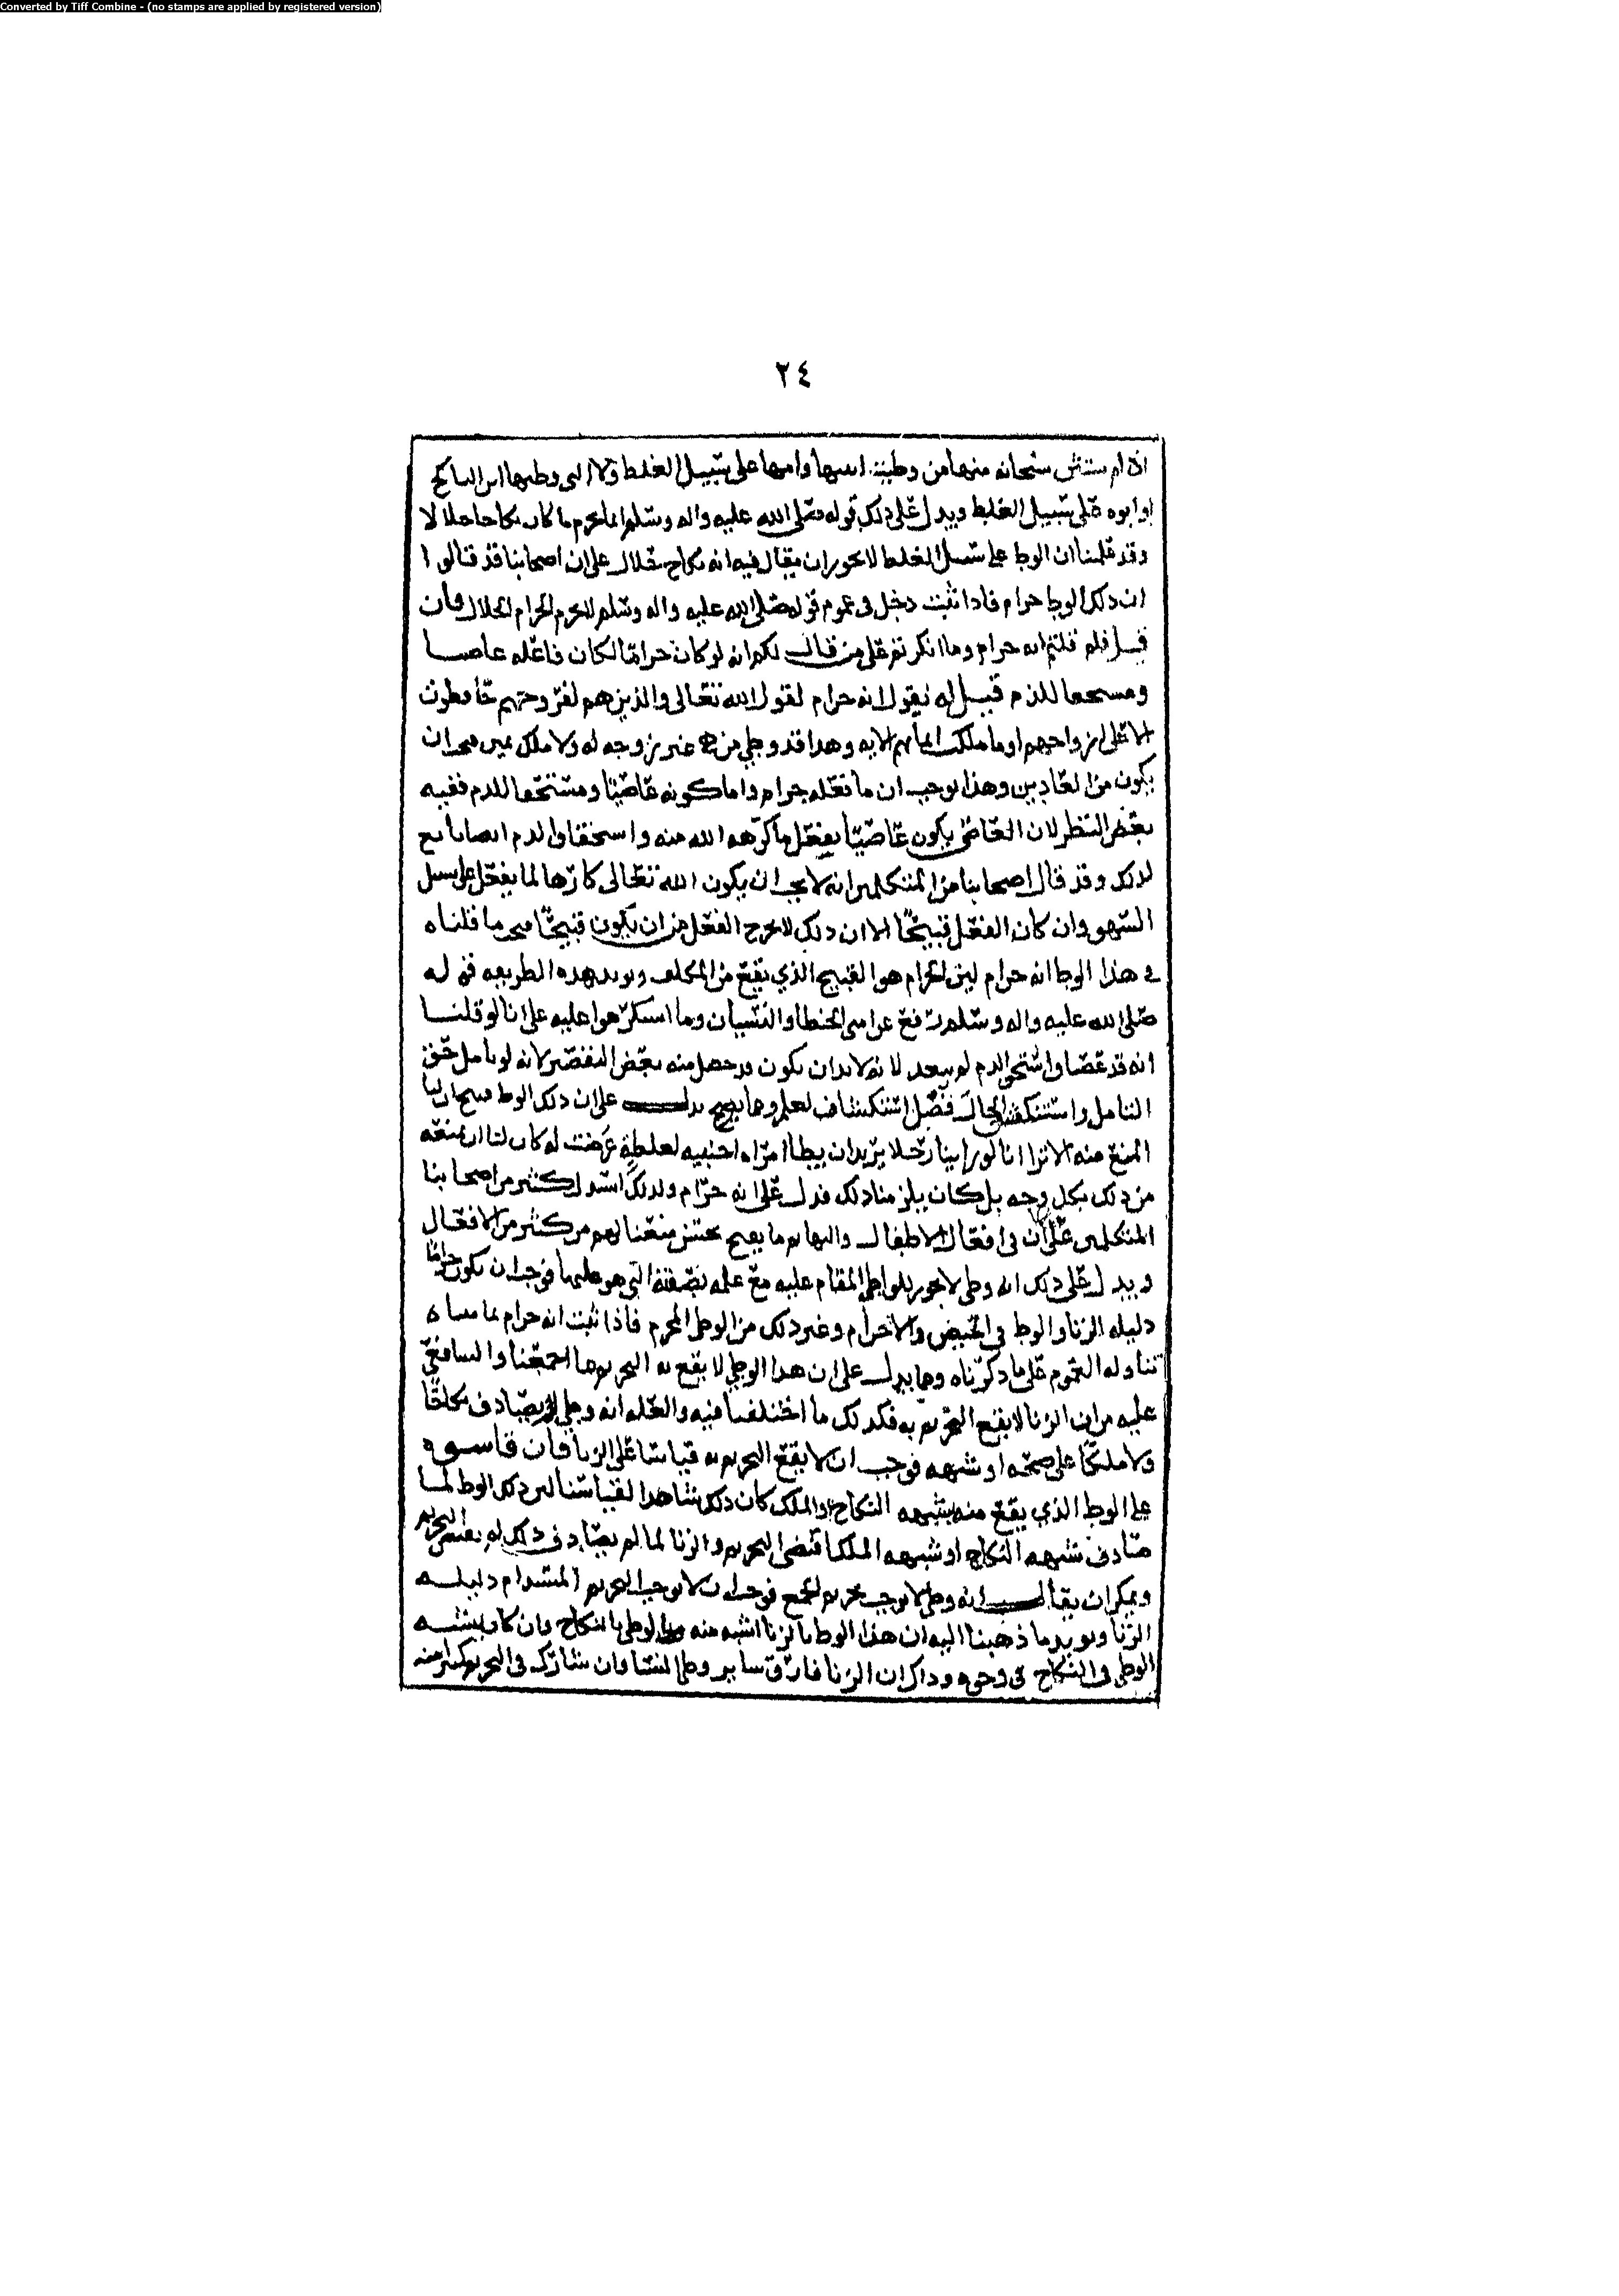 Converted by Tiff Combine - (no stamps are applied by registered version)
٢٤
اذ لم يستثن سبحانه منها من وطيت ابنتها وامها على سبيل الغلط ولا التي وطيها ابن الناكح
او ابوه على سبيل الغلط ويدل على ذلك قوله صلى الله عليه واله وسلم انما يحرم ما كان نكاحا حلالا
وقد علمنا ان الوط على سبيل الغلط لا يجوز ان يقال فيه انه نكاح حلال على ان اصحابنا قد قالوا
ان ذلك الوط حرام فاذا ثبت دخل في عموم قوله صلى الله عليه واله وسلم لا يحرم الحرام الحلال فان
قيل فلم قلتم انه حرام وما انكرتم على من قال لكم انه لو كان حراما لكان فاعله عاصيا
ومستحقا للذم قيل له نقول انه حرام لقول الله تعالى والذين هم لفروجهم حافظون
الا على ازواجهم او ما ملكت ايمانهم الايه وهذا قد وطي من غير زوجه له ولا ملك يمين فيجب ان
يكون من العادين وهذا يوجب ان ما فعله حرام واما كونه عاصيا ومستحقا للذم ففيه
بعض النظر لان العاصي يكون عاصيا بفعل ما كرهه الله منه واستحقاق الذم ايضا تابع
لذلك وقد قال اصحابنا من المتكلمين انه لا يجب ان يكون الله تعالى كارها لما يفعل على سبيل
السهو وان كان الفعل قبيحا الا ان ذلك لا يخرج الفعل من ان يكون قبيحا فصح ما قلناه
في هذا الوط انه حرام لان الحرام هو القبيح الذي يقع من المكلف ويويد هذه الطريقه قوله
صلى الله عليه واله وسلم رفع عن امتي الخطا والنسيان وما استكرهوا عليه على انا لو قلنا
انه قد عصا واستحق الذم لم يبعد لانه لا بد ان يكون قد حصل منه بعض التقصير لانه لو تامل حق
التامل واستكشف الحال فضل استكشاف لعلم ومما يدل على ان ذلك الوط قبيح ان لنا
المنع منه الا ترا انا لو راينا رجلا يريد ان يطا امراه اجنبيه لغلطة عرضت له كان لنا ان نمنعه
من ذلك بكل وجه بل كان يلزمنا ذلك فدل على انه حرام ولذلك استدل كثير من اصحابنا
المتكلمين على ان في افعال الاطفال والبهايم ما يقبح بحسن منعنا لهم من كثير من الافعال
ويدل على ذلك انه وطي لا يجوز للواطي المقام عليه مع علمه بصفته التي هو عليها فوجب ان يكون حراما
دليله الزنا والوط في الحيض والاحرام وغير ذلك من الوطي المحرم فاذا ثبت انه حرام بما بيناه
تناوله العموم على ما ذكرناه ومما يدل على ان هذا الوطي لا يقع به التحريم ما اجمعنا والشافعي
عليه من ان الزنا لا يقع التحريم به فكذلك ما اختلفنا فيه والعله انه وطي لم يصادف نكاحا
ولا ملكا على صحه او شبهه فوجب ان لا يقع التحريم به قياسا على الزنا فان قاسوه
على الوط الذي يقع منه بشبهه النكاح او الملك كان ذلك شاهدا لقياسنا لان ذلك الوط لما
صادف شبهه النكاح او شبهه الملك اقتضى التحريم والزنا لما لم يصادف ذلك لم يقتض التحريم
ويمكن ان يقال انه وطي لا يوجب تحريم الجمع فوجب ان لا يوجب التحريم المستدام دليله
الزنا ويويد ما ذهبنا اليه ان هذا الوط بالزنا اشبه منه بالوطي بالنكاح وان كان يشبه
الوطي في النكاح في وجوه وذاك ان الزنا فارق ساير وطي النسا وان شارك في التحريم كثير منه